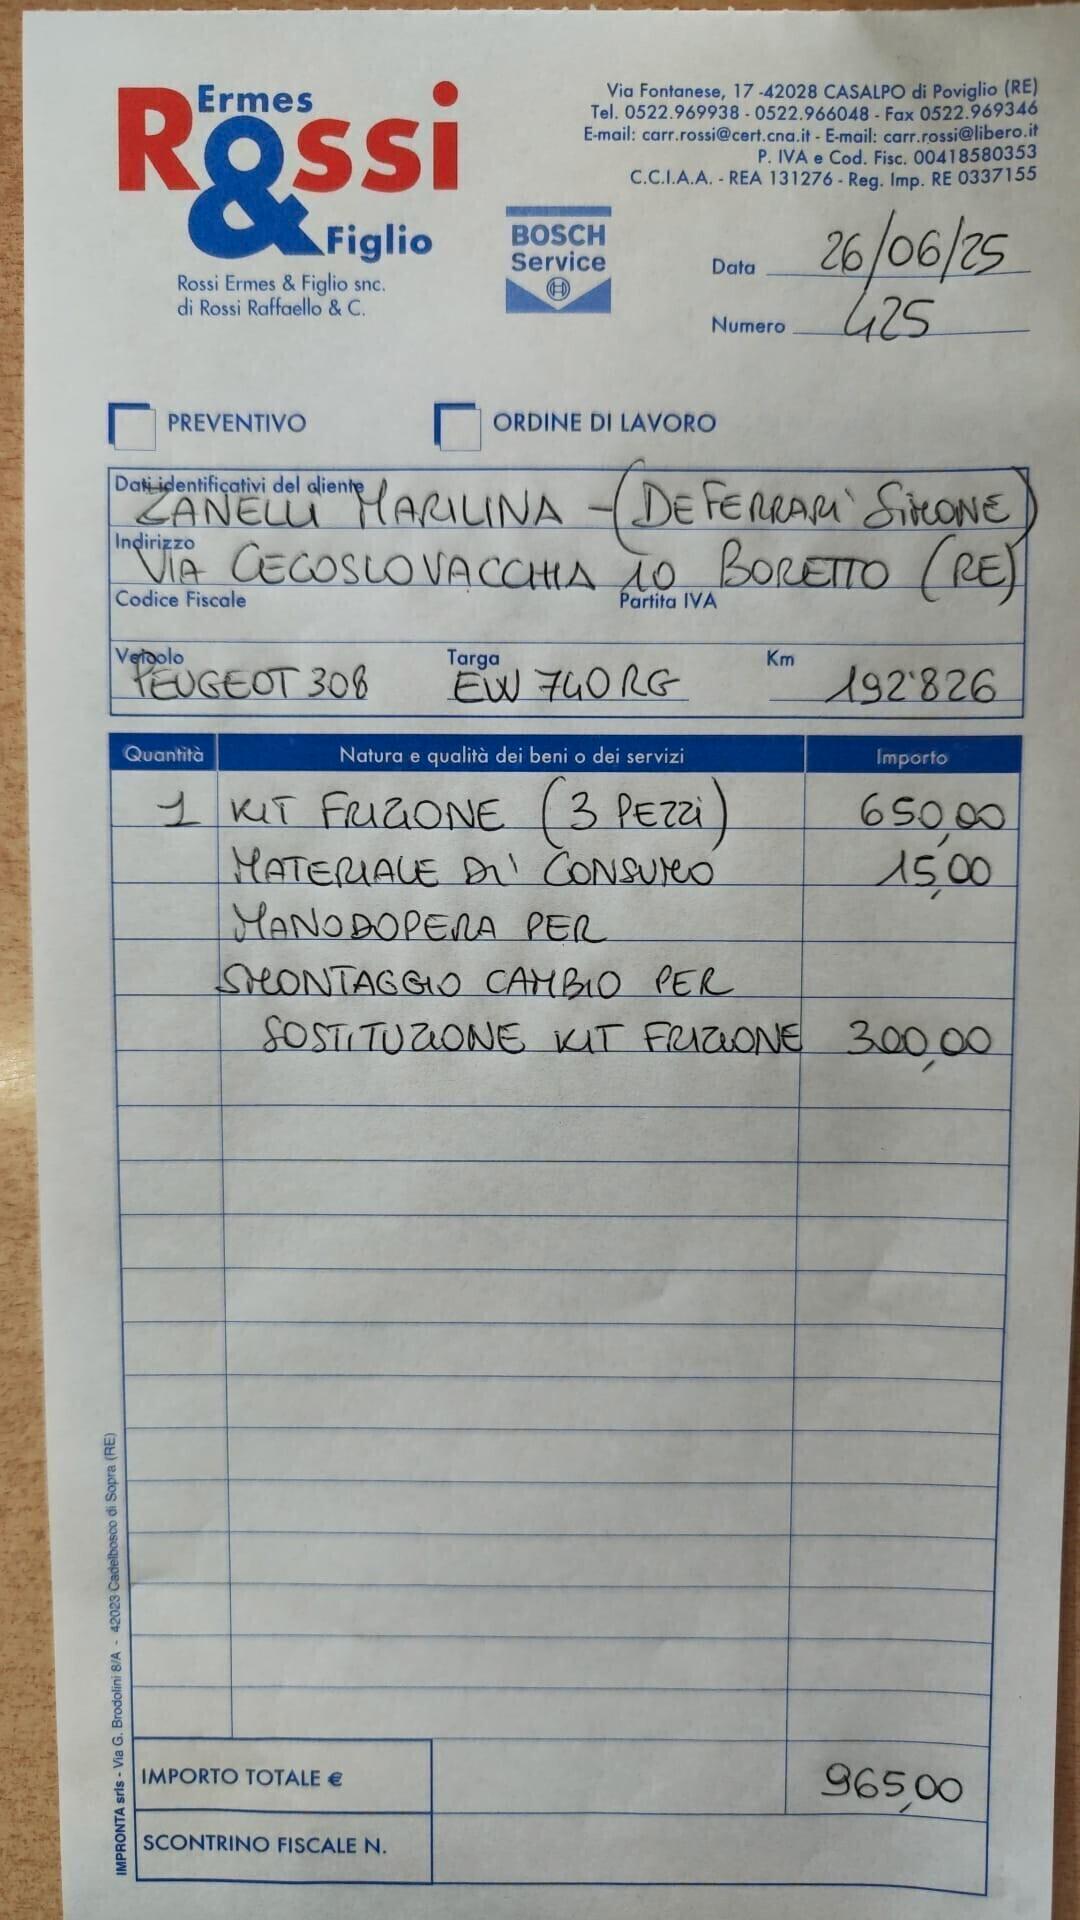 Ermes
Rossi
&
Figlio
Rossi Ermes & Figlio snc.
di Rossi Raffaello & C.
Via Fontanese, 17 -42028 CASALPO di Poviglio (RE)
Tel. 0522.969938 - 0522.966048 - Fax 0522.969346
E-mail: carr.rossi@cert.cna.it - E-mail: carr.rossi@libero.it
P. IVA e Cod. Fisc. 00418580353
C.C.I.A.A. - REA 131276 - Reg. Imp. RE 0337155
BOSCH
Service
Data 26/06/25
Numero 425
PREVENTIVO ORDINE DI LAVORO
Dati identificativi del cliente
ZANELLI MARILINA - (DEFERRARI SIMONE)
Indirizzo
VIA CECOSLOVACCHIA 10 BORETTO (RE)
Codice Fiscale Partita IVA
Veicolo Targa Km
PEUGEOT 308 EW 740RG 192'826
Quantità Natura e qualità dei beni o dei servizi Importo
1 KIT FRIZIONE (3 PEZZI) 650,00
MATERIALE DI CONSUMO 15,00
MANODOPERA PER
SMONTAGGIO CAMBIO PER
SOSTITUZIONE KIT FRIZIONE 300,00
IMPORTO TOTALE € 965,00
SCONTRINO FISCALE N.
IMPRONTA srls - Via G. Brodolini 8/A - 42023 Cadelbosco di Sopra (RE)